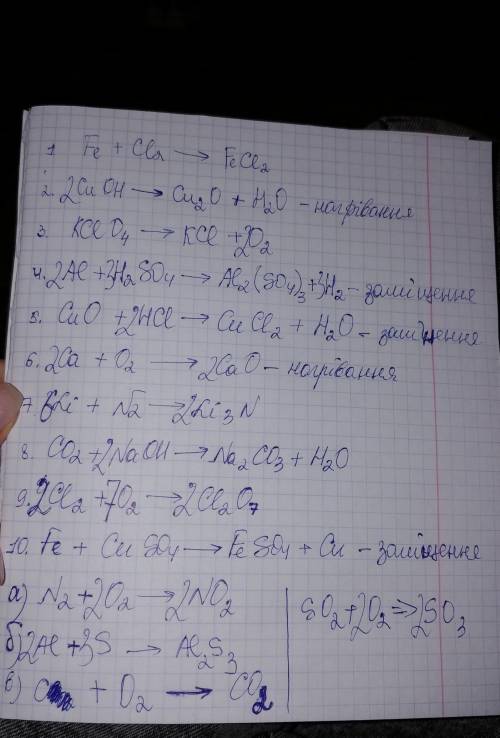 1. Fe + Cl2 → FeCl2
2. 2CuOH → Cu2O + H2O - нагрівання
3. KClO4 → KCl + 2O2
4. 2Al + 3H2SO4 → Al2(SO4)3 + 3H2 - заміщення
5. CuO + 2HCl → CuCl2 + H2O - заміщення
6. 2Ca + O2 → 2CaO - нагрівання
7. 6Li + N2 → 2Li3N
8. CO2 + 2NaOH → Na2CO3 + H2O
9. 2Cl2 + 7O2 → 2Cl2O7
10. Fe + CuSO4 → FeSO4 + Cu - заміщення
а) N2 + 2O2 → 2NO2
б) 2Al + 3S → Al2S3
в) C + O2 → CO2
SO2 + 2O2 => 2SO3